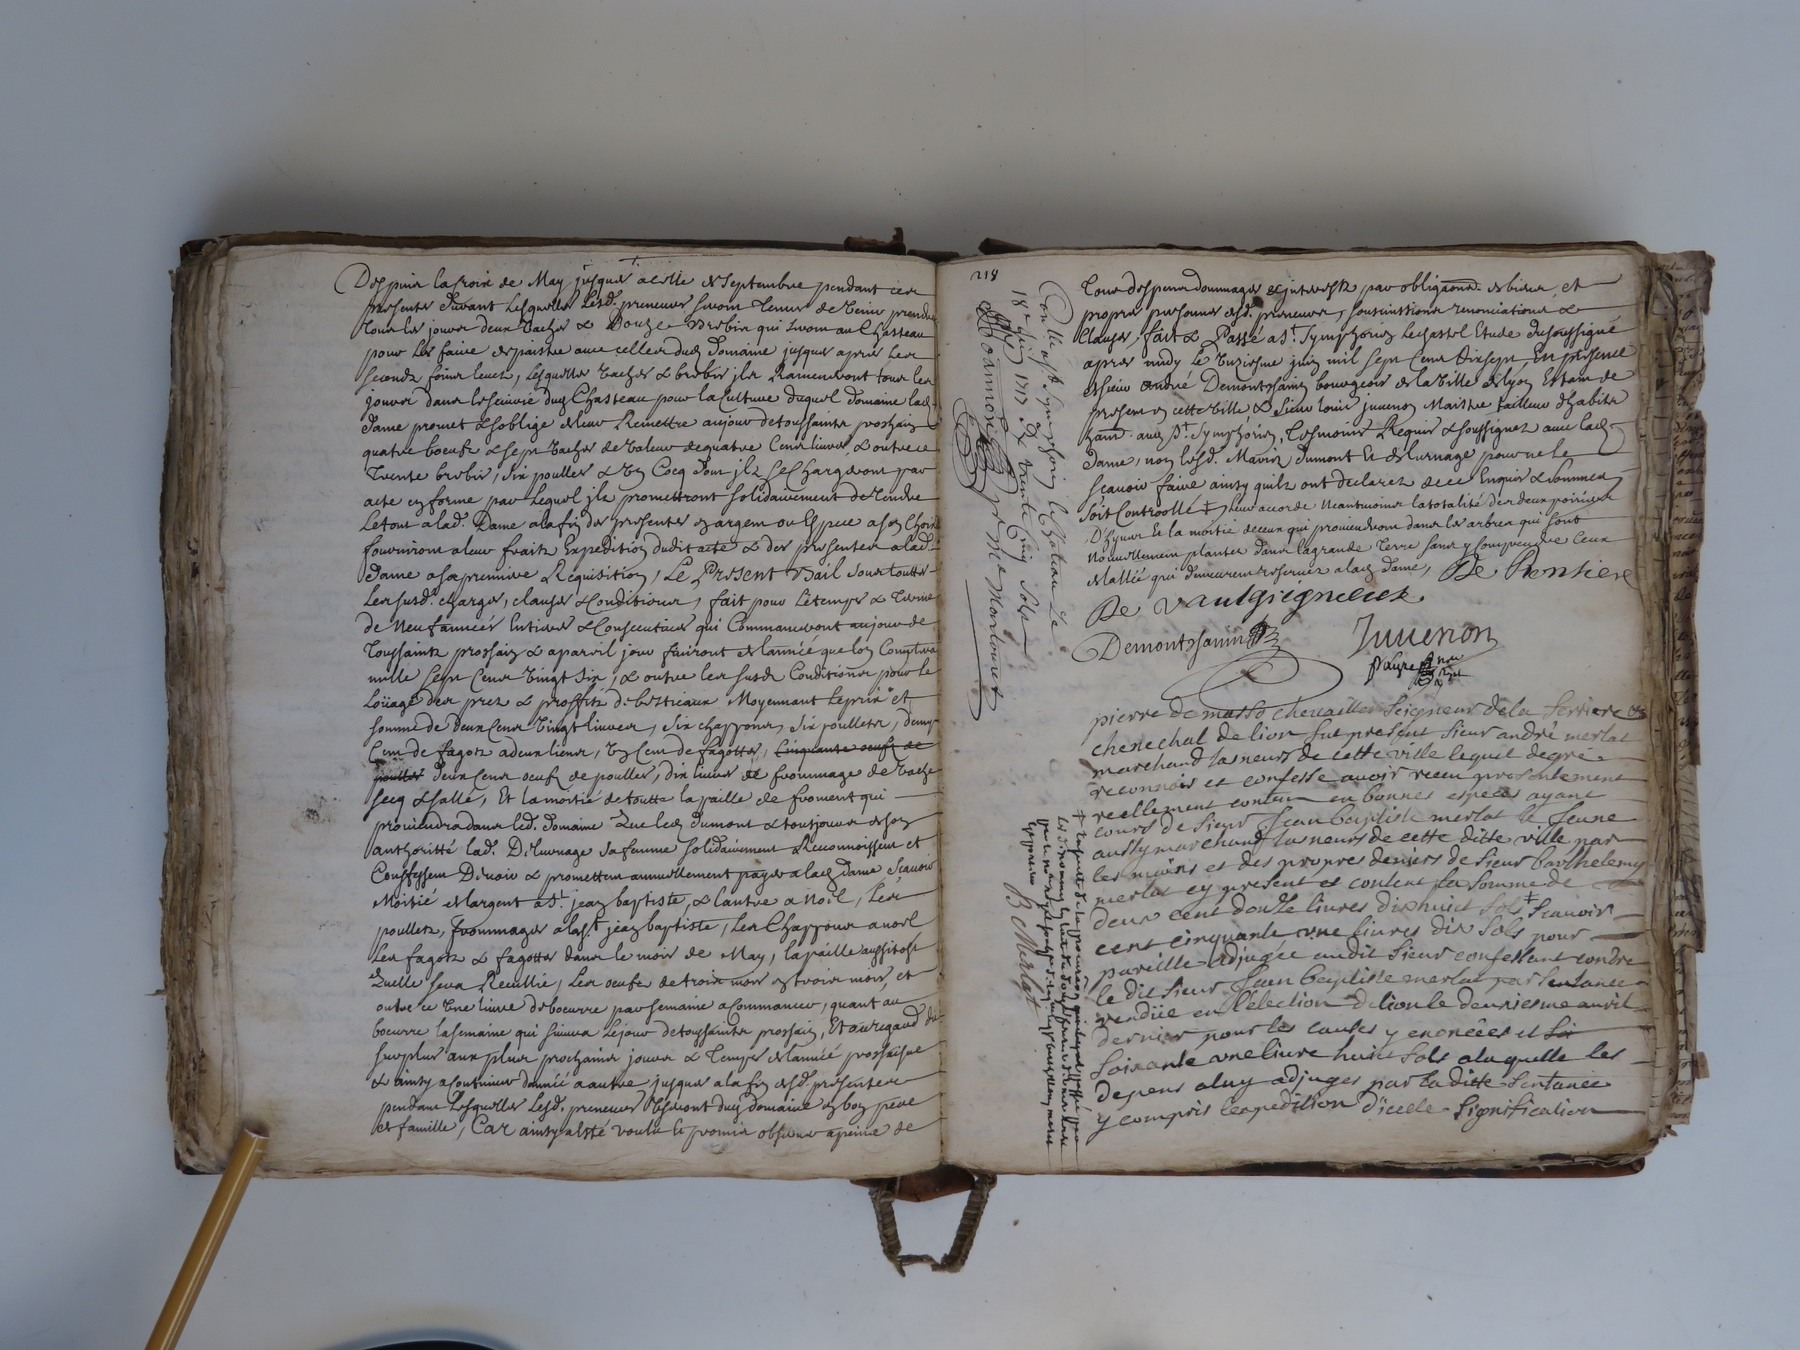 Despuis la croix de May jusques a celle de Septembre pendant ces
presentes durant lesquelles lesd. preneurs seront tenus de venir prendre
tous les jours deux vaches & douze brebis qui seront au Chasteau
pour les faire depaistre avec celles dud. Domaine jusques apres les
seconds foins levez, lesquelles vaches & brebis ils Rameneront tous les
jours dans les escuries dud. Chasteau pour la Culture duquel Domaine lad.
Dame promet & soblige de leur Remettre au jour de toussaints prochain
quatre boeufs & sept vaches de valeur de quatre Cens livres, & outre ce
Trente brebis, six poulles & un Cocq dont ils se Chargeront par
acte en forme par lequel ils promettront solidairement de rendre
le tout a lad. Dame a la fin des presentes en argent ou Espece a son Choix
fourniront a leur fraitz Expedition dudit acte & des presentes a lad.
Dame a sa premiere Requisition, Le Present Bail sous touttes
les susd. charges, clauses & Conditions, fait pour le temps & terme
de Neuf années Entieres & Consecutives qui Commanceront au jour de
Toussaintz prochain & a pareil jour finiront de l'année que lon Comptera
mille sept Cens vingt six, & outre les susd. Conditions pour le
Loüage des prez & proffitz de bestiaux Moyennant le prix et
somme de deux Cens vingt livres, six chappons, six poullets, demy
Cent de fagotz a deux liens, un Cent de fagottes, Cinquante oeufs de
poulles deux Cens oeufs de poulles, dix livres de frommage de vache
secq & sallé, Et la moitié de toutte la paille de froment qui
proviendra dans led. Domaine que led. Dumont & tousjours de son
authoritté lad. Deturnage sa femme solidairement Reconnoissent et
Confessent Devoir & promettent annuellement payer a lad. Dame sçavoir
Moitié de l'argent a St. jean baptiste, & l'autre a Noel, Les
poulletz, frommages a la St. jean baptiste, Les Chappons a noel
Les fagotz & fagottes dans le mois de May, la paille aussitost
quelle sera Recullie, Les oeufs de trois mois en trois mois, et
outre ce une livre de beurre par semaine a Commancer, quant au
beurre la semaine qui suivra le jour de toussaints prochain, Et au regard du
surplus aux plus prochains jours & Temps de l'année prochaine
& ainsy a Continuer d'année a autre jusques a la fin desd. presentes
pendant lesquelles lesd. preneurs Useront dud. domaine en bon pere
de famille, Car ainsy a esté voulu & promis observer a peine de
218
Controllé a St. Symphorien le Chateau le
18 juin 1717 Rx trente Cinq sols
tous despens dommages & interestz par obligaonn de biens, et
propres personnes desd. preneurs, soubmissions renonciations &
Clauses, fait & Passé a St. Symphorien le Chastel Etude du soussigné
apres midy le treziesme juin mil sept Cens dixsept, En presence
de sieur André Demontchanin bourgeois de la ville de lyon Estant de
present en cette ville & sieur louis juuenon Maistre tailleur d'habits
habitant aud. St. Symphorien, tesmoins Requis & soussignez avec lad.
Dame, non lesd. Mariez Dumont et deturnage pour ne le
sçavoir faire ainsy quils ont declarez de ce Enquis & Sommez
soit Controllé leur accorde Neantmoins la totalité des deux poiriers
D'hyver Et la moitié de ceux qui proviendront dans les arbres qui sont
Nouvellement plantez dans la grande Terre sans y comprendre Ceux
de l'allée qui demeurent reservez a lad. Dame, De Rensiere
De Vaulgigneux
Demontchanin Juuenon
pierre de masso chevallier Seigneur de la ferriere &
chenechal de lion fut present Sieur andré merlat
marchand tasneurs de cette ville lequel de gré
reconnois et confesse avoir receu presentement
reellement contan en bonnes especes ayant
cours de Sieur Jean baptiste merlat le Jeune
aussy marchand tasneurs de cette ditte ville par
les mains et des propres deniers de sieur barthelemy
merlat cy present et content la somme de
deux cent douze livres dixhuict sols scauoir
cent cinquante vne livres dix sols pour
pareille adjugée audit sieur confessant contre
le dit sieur Jean baptiste merlat par sentance
rendüe en l'élection de lion le deuxiesme auril
dernier pour les causes y enoncées et
soixante vne livre huict sols a laquelle les
depens a luy adjuges par la ditte sentance
y compris lexpedition d'icelle signification
B Merlat